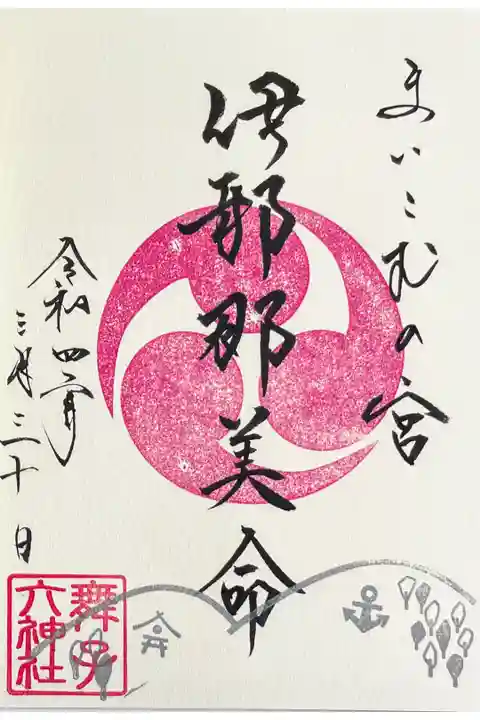 まいこむの宮
伊耶那美命
令和四年
三月三十日
舞子
六神社